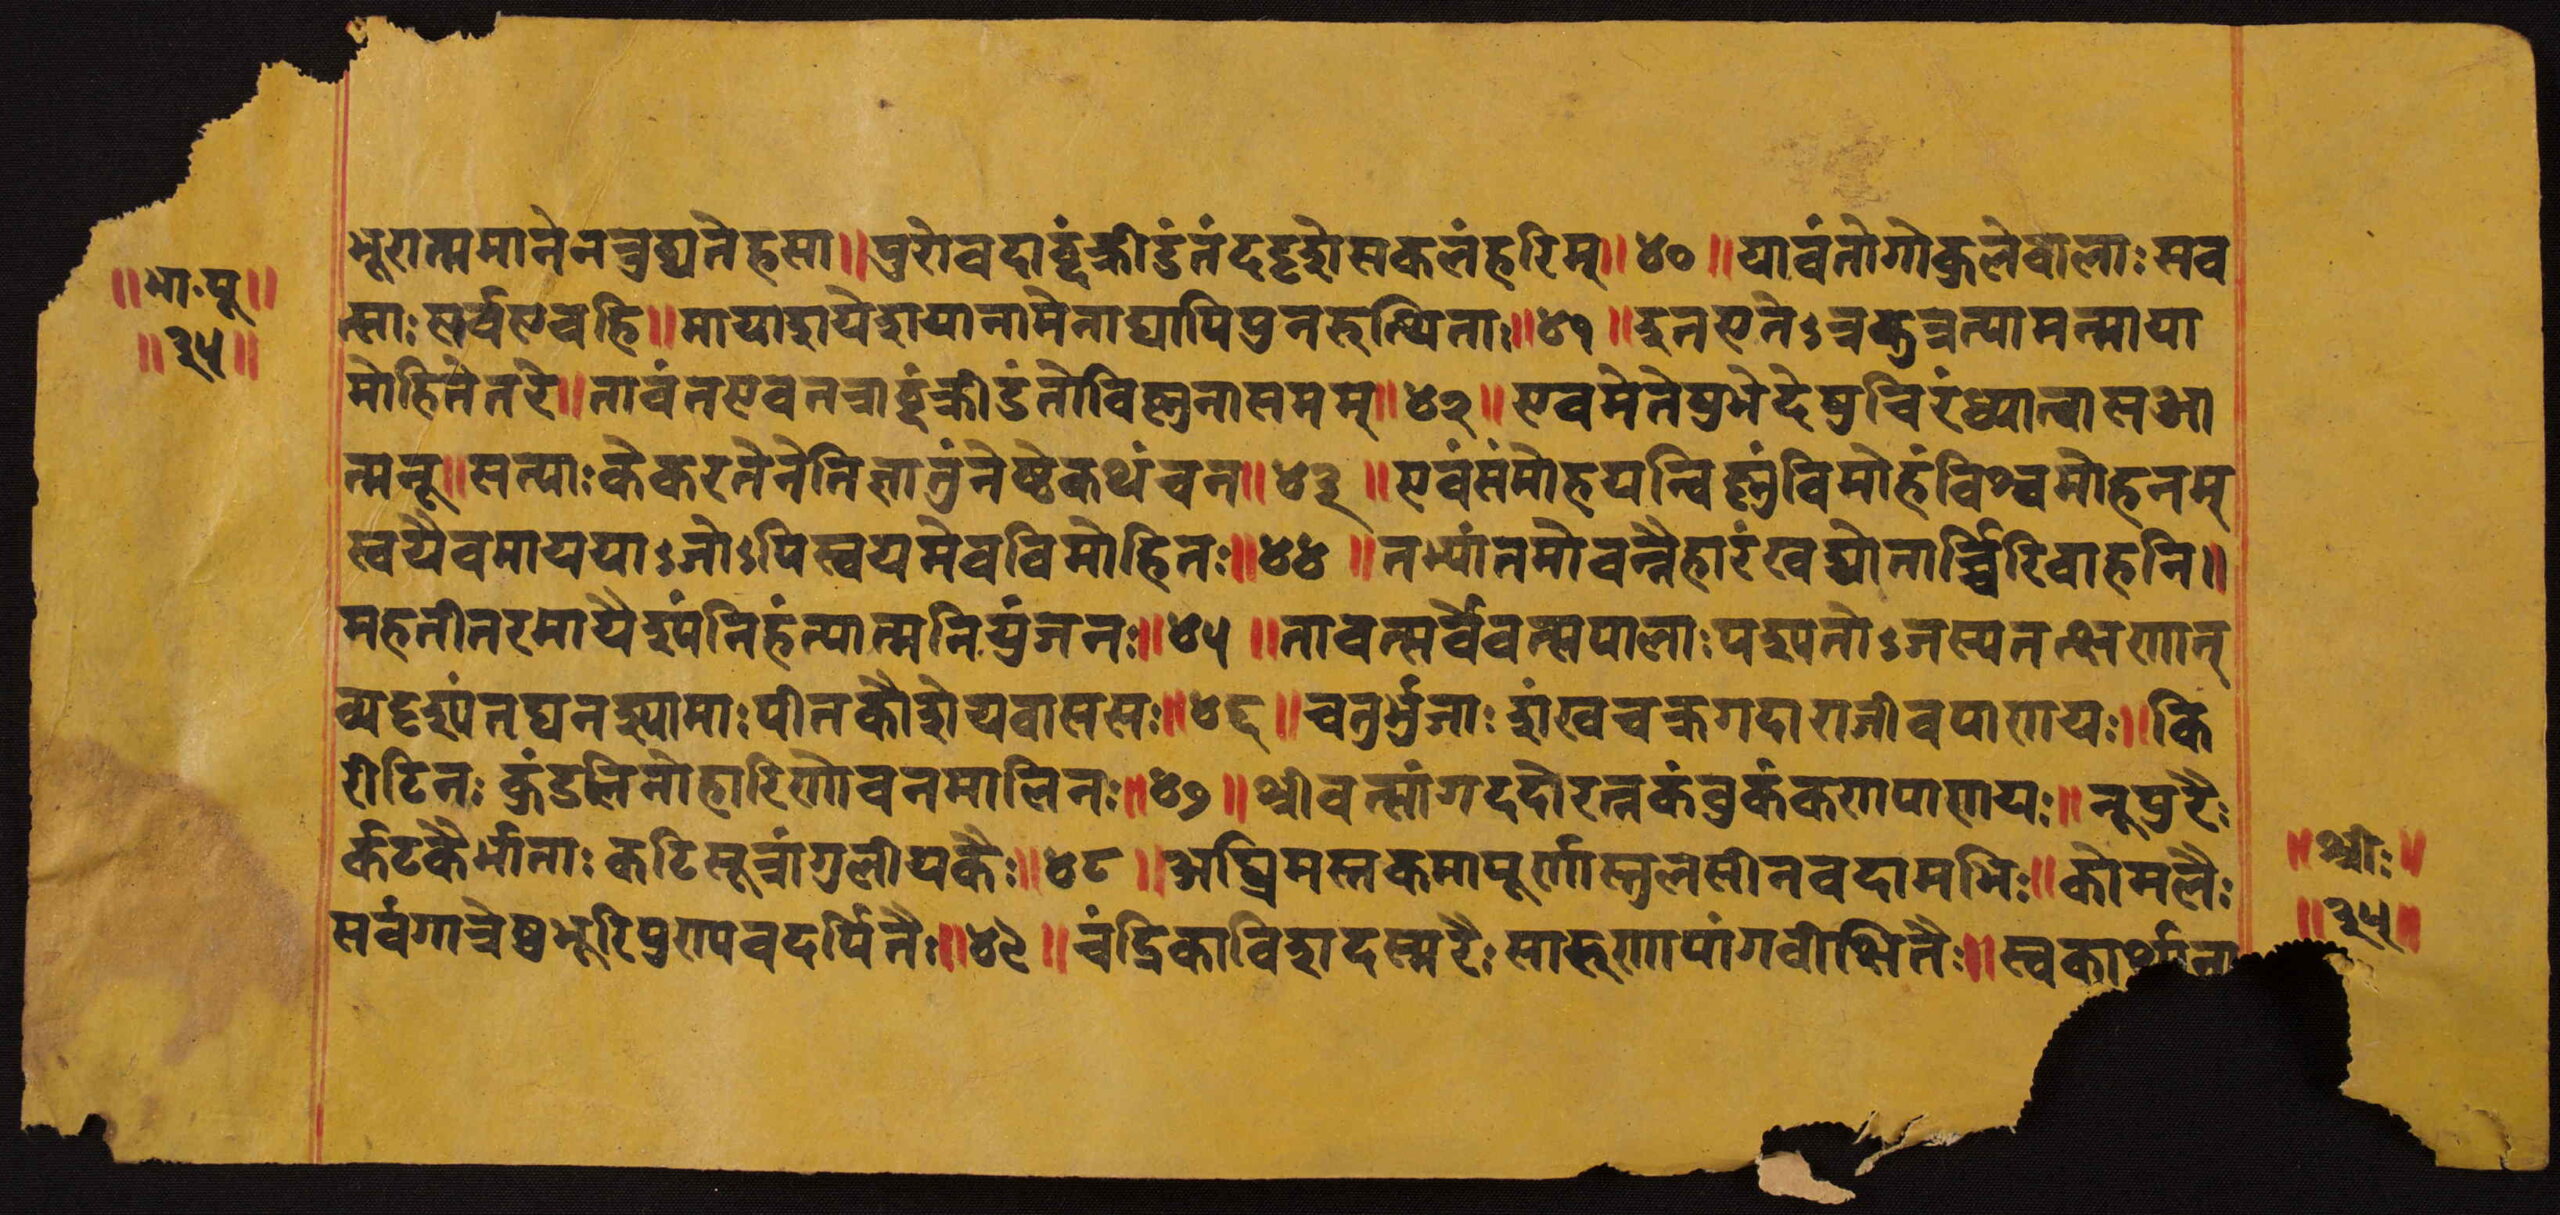 ॥भा॰पू॥
॥३५॥
भूरात्ममानेनत्रुट्यनेहसा॥पुरोवदाब्दंक्रीडंतंददृशेसकलंहरिम्॥४०॥यावंतोगोकुलेबालाः सव
त्साः सर्वएवहि॥मायाशयेशयानामेनाद्यापिपुनरुत्थिताः॥४१॥इतएतेऽत्रकुत्रत्यामन्माया
मोहितेतरे॥तावंतएवतत्राब्दंक्रीडंतोविष्णुनासमम्॥४२॥एवमेतेषुभेदेषुचिरंध्यात्वासआ
त्मभू॥सत्याः केकतरेनेतिज्ञातुंनेष्टेकथंचन॥४३॥एवंसंमोहयन्विष्णुंविमोहंविश्वमोहनम्
स्वयैवमाययाऽजोऽपिस्वयमेवविमोहितः॥४४॥तभ्यांतमोवन्नैहारंखद्योतार्च्चिरिवाहनि॥
महतीतरमायैशंपनिहंत्यात्मनियुंजतः॥४५॥तावत्सर्वेवत्सपालाः पश्यतोऽजस्यतत्क्षणात्
व्यदृश्यंतघनश्यामाः पीतकौशेयवाससः॥४६॥चतुर्भुजाः शंखचक्रगदाराजीवपाणयः॥कि
रीटिनः कुंडलिनोहारिणोवनमालिनः॥४७॥श्रीवत्सांगददोरत्नकंबुकंकणपाणयः॥नूपुरैः
र्कटकैर्भाताः कटिसूत्रांगुलीयकैः॥४८॥अंघ्रिमस्तकमापूर्णास्तुलसीनवदामभिः॥कोमलैः
सर्वगात्रेषुभूरिपुण्यवदर्पितैः॥४९॥चंद्रिकाविशदस्मेरैः सारुणापांगवीक्षितैः॥स्वकार्थाना
॥श्रीः॥
॥३५॥